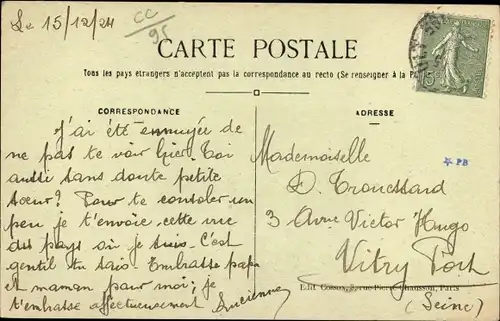 Le 15/12/24
CC
95
CARTE POSTALE
Tous les pays étrangers n'acceptent pas la correspondance au recto (Se renseigner à la
CORRESPONDANCE
J'ai été ennuyée de
ne pas te voir hier. Toi
aussi sans doute petite
sœur? Pour te consoler un
peu je t'envoie cette vue
des pays où je suis. C'est
gentil tu sais. Embrasse papa
et maman pour moi; je
t'embrasse affectueusement Lucienne
ADRESSE
Mademoiselle
D. Trouessard
3 Avue Victor Hugo
Vitry Port
(Seine)
PB
Edit Pierre-Chausson, Paris